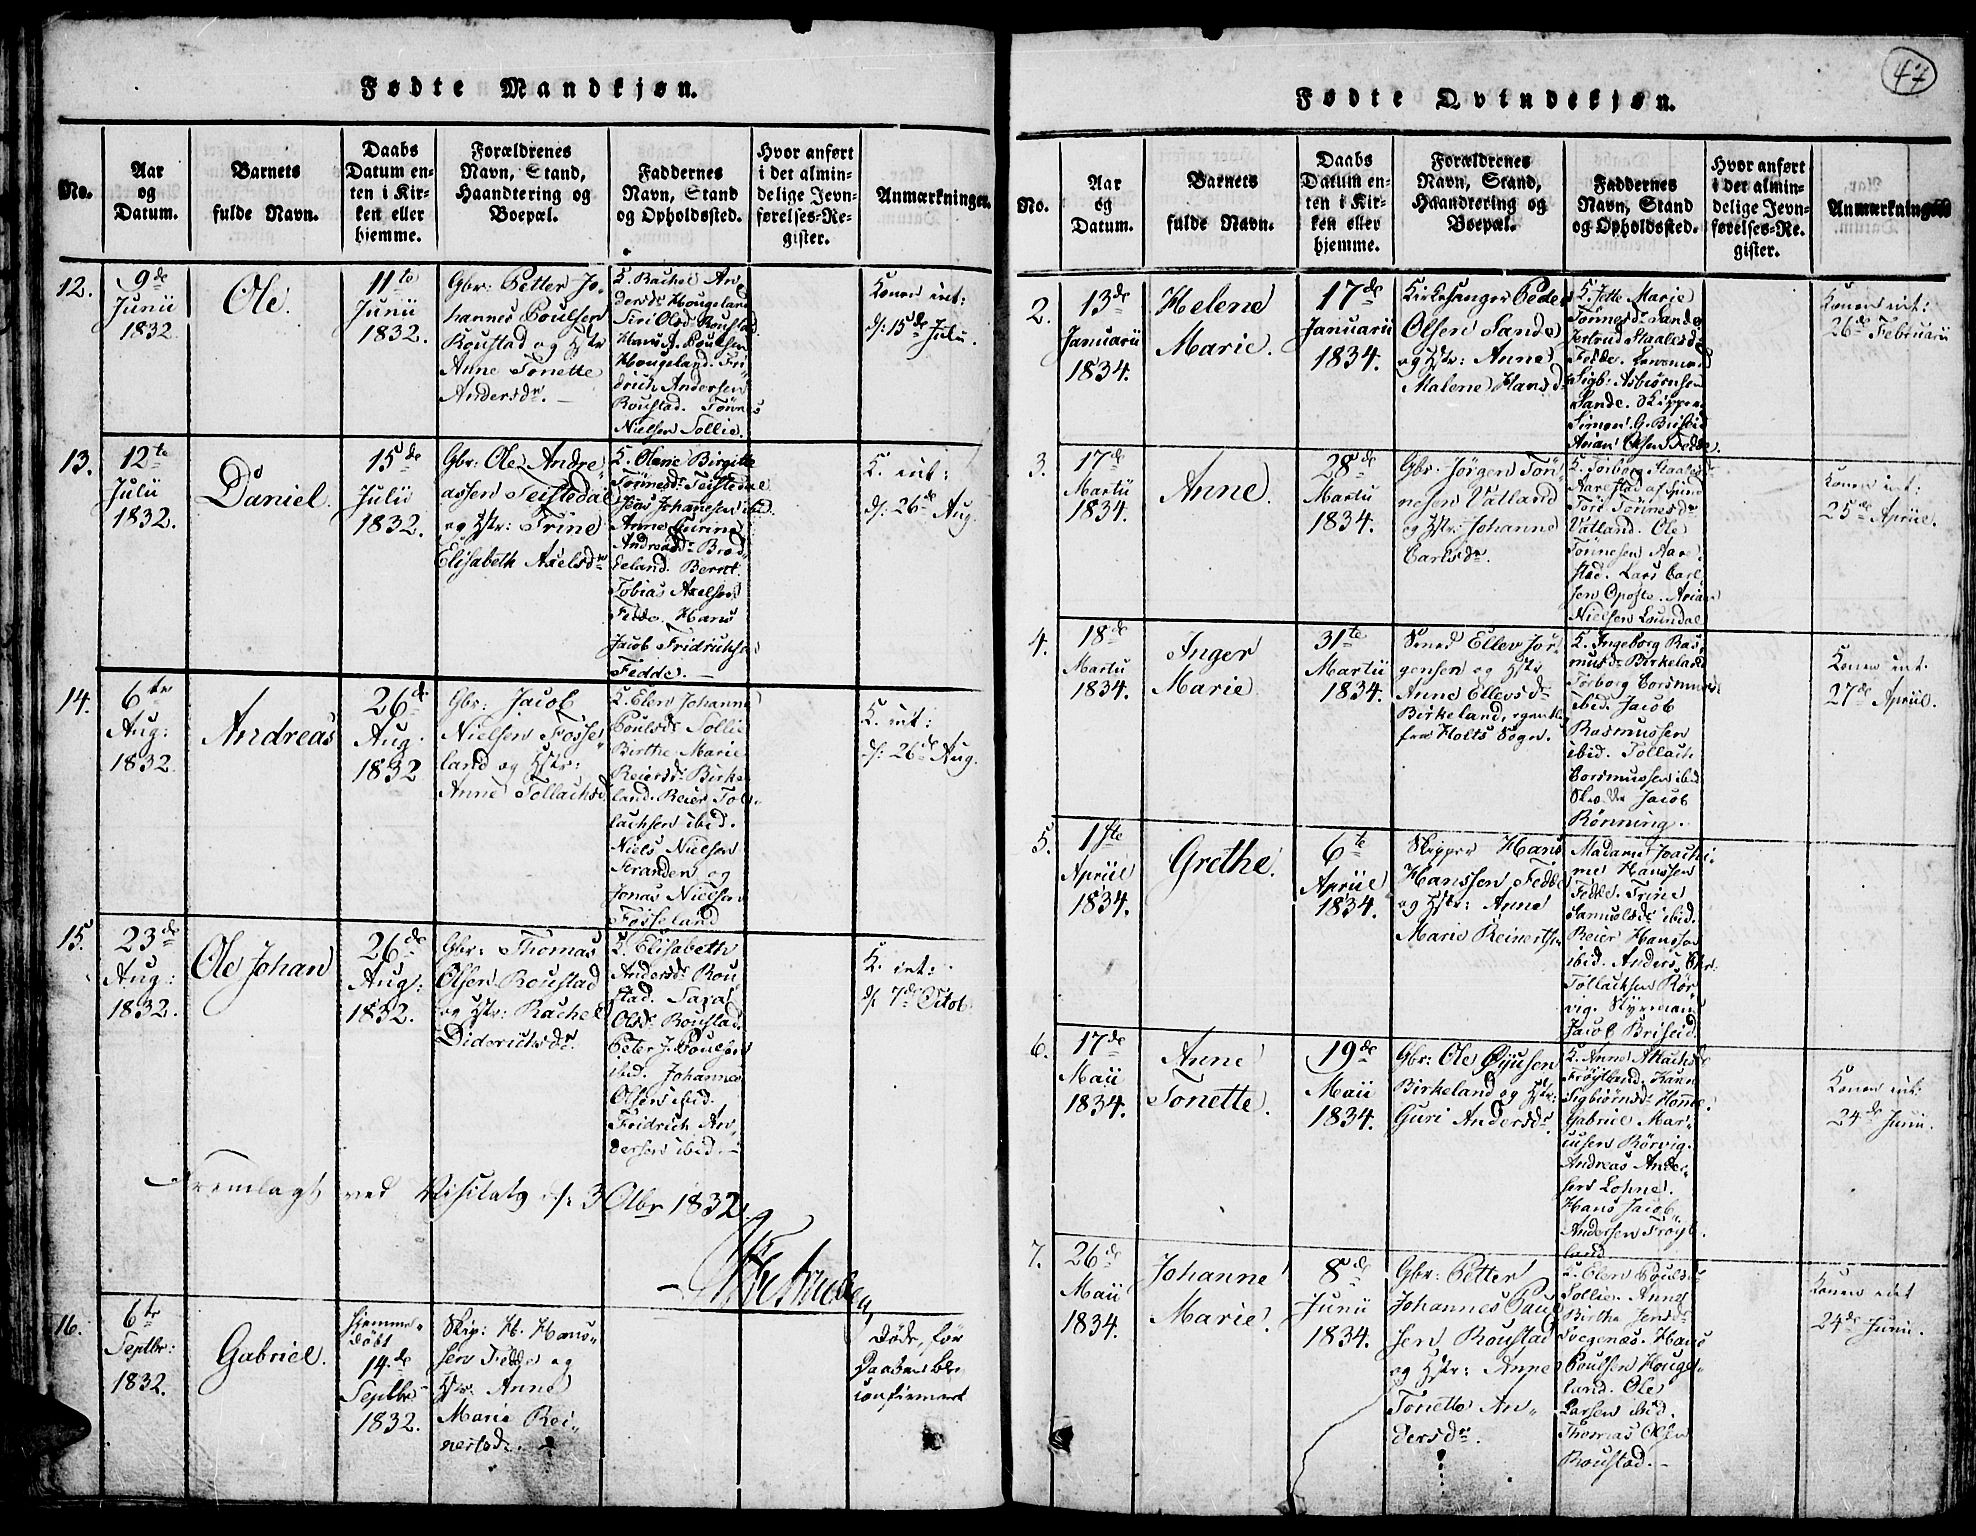 Fødte Mandkjøn.
No.
Aar
og
Datum.
Barnets
fulde Navn.
Daabs
Datum en-
ten i Kir-
ken eller
hjemme.
Forældrenes
Navn, Stand,
Haandtering og
Boepæl.
Faddernes
Navn, Stand
og Opholdssted.
Hvor anført
i det almin-
delige Jevn-
førelses-Re-
gister.
Anmærkninger.
12.
9de
Junii
1832
Ole.
11te
Junii
1832.
Gbr: Petter Jo-
hannes Poulsen
Roustad og Hstr
Anne Tonette
Andersdr.
K. Rachel An-
dersdr Hougeland
Siri Olsdr Roustad.
Hans J. Poulsen
Hougeland. Fri-
drich Andersen
Roustad. Tønnes
Nielsen Sollie.
Konen int:
d: 15de Julii.
13.
12te
Julii
1832.
Daniel.
15de
Julii
1832.
Gbr. Ole Andre-
assen Teistedal
og Hstr: Trine
Elisabeth Axelsdr
K. Olene Birgitte
Tønnesdr Teistedal
Johannesen ibid.
Anne
Andreasdr
Bernt
Tobias Axelsen
Fedde. Hans
Jacob Fridrichsen
Fedde.
K. int:
d: 26de Aug.
14.
6te
Aug:
1832
Andreas
26de
Aug.
1832
Gbr: Jacob
Nielsen Fosse-
land og Hstr:
Anne Tollachsdr
K. Elen Johanne
Poulsdr Sollie
Birthe Marie
Reiersdr Birke-
land. Reier Tol-
lachsen ibid.
Niels Nielsen
Stranden og
Jonas Nielsen
Fosseland
K. int:
d: 26de Aug.
15.
23de
Aug:
1832.
Ole Johan
26de
Aug:
1832.
Gbr: Thomas
Olsen Roustad
og Hstr: Rachel
Diderichsdr.
K. Elisabeth
Andersdr Rou-
stad. Sara
Olsdr Roustad.
Peter J. Poulsen
ibid. Johannes
Olsen ibid.
Fridrich An-
dersen ibid.
K. int:
d: 7de Octob.
Fremlagt ved Visitats d: 3 Octbr 1832.
16.
6te
Septbr:
1832.
Gabriel.
hjemme-
døbt
14de
Septbr
1832.
Skip: H. Han-
sen Fedde og
Hstr. Anne
Marie Rei-
nertsdr.
Døde, før
Daaben blev
confirmert
47
Fødte Qvindekjøn.
No.
Aar
og
Datum.
Barnets
fulde Navn.
Daabs
Datum en-
ten i Kir-
ken eller
hjemme.
Forældrenes
Navn, Stand,
Haandtering og
Boepæl.
Faddernes
Navn, Stand
og Opholdssted.
Hvor anført
i det almin-
delige Jevn-
førelses-Re-
gister.
Anmærkninger
2.
13de
Januarii
1834.
Helene
Marie.
17de
Januarii
1834.
Kirkesanger Peder
Olsen Sande
og Hstr: Anne
Malene Hansdr
K. Jette Marie
Tønnesdr Sande
Jertrud Staalesdr
Fedde. Lensmand
Sigb: Asbiørnsen
Sande. Skipper
Simon G. Briseid
Arian Olsen Fedde.
Konen int:
26de Februarii
3.
17de
Martii
1834.
Anne.
28de
Martii
1834.
Gbr. Jørgen Tøn-
nesen Vatland
og Hstr: Johanne
Carlsdr.
K. Torborg Staalesdr
Aarestad af Lund
Tori Tønnesdr
Vatland. Ole
Tønnesen Aare-
stad. Lars Carl-
sen Opofte. Arian
Nielsen Loundal
Konen int:
25de Apriil.
4.
18de
Martii
1834.
Inger
Marie
31te
Martii
1834.
Smed Ellev Jør-
gensen og Hstr
Anne Ellevsdr
Birkeland, egentl.
fra Holts Sogn.
K. Ingeborg Ras-
musdr Birkeland
Torborg Corsmusdr
ibid. Jacob
Rasmussen
ibid. Tollach
Corsmussen ibid
Jacob
Rønning.
Konen int.
27de Apriil.
5.
1ste
Apriil
1834.
Grethe.
6te
Apriil
1834.
Skipper Hans
Hanssen Fedde
og Hstr: Anne
Marie Reinertsdr
Madame Joachi-
me Hanssen
Fedde. Trine
Samuelsdr ibid.
Reier Hansson
ibid. Anders Chr.
Tollachsen Rør-
vig. Styrmand
Jacob Briseid.
6.
17de
Maii
1834.
Anne
Tonette.
19de
Maii
1834.
Gbr: Ole
Birkeland og Hstr:
Guri Andersdr.
K. Anne
Frøytland.
Sigbiørnsdr Homme.
Gabriel Mar-
cusen Rørvig.
Andreas Ander-
sen Lohne.
Hans Jacob
Andersen Frøyt-
land.
Konen int.
24de Junii.
7.
26de
Maii
1834.
Johanne
Marie.
8de
Junii
1834.
Gbr: Petter
Johannes Poul-
sen Roustad
og Hstr: Anne
Tonette An-
dersdr.
K. Elen Poulsdr
Sollie. Anne
Birthe Jensdr
Svegenæs. Hans
Poulsen Houge-
land. Ole
Larsen ibid.
Thomas Olsen
Roustad.
Konen int
24de Junii.